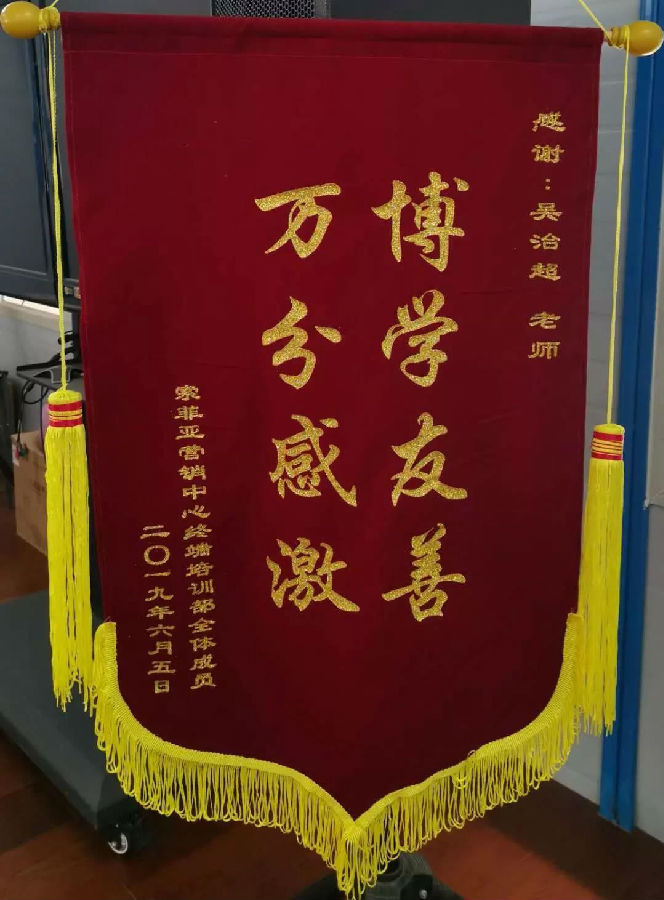 感谢：吴治超 老师
博学友善
万分感激
索菲亚营销中心终端培训部全体成员
二〇一九年六月五日